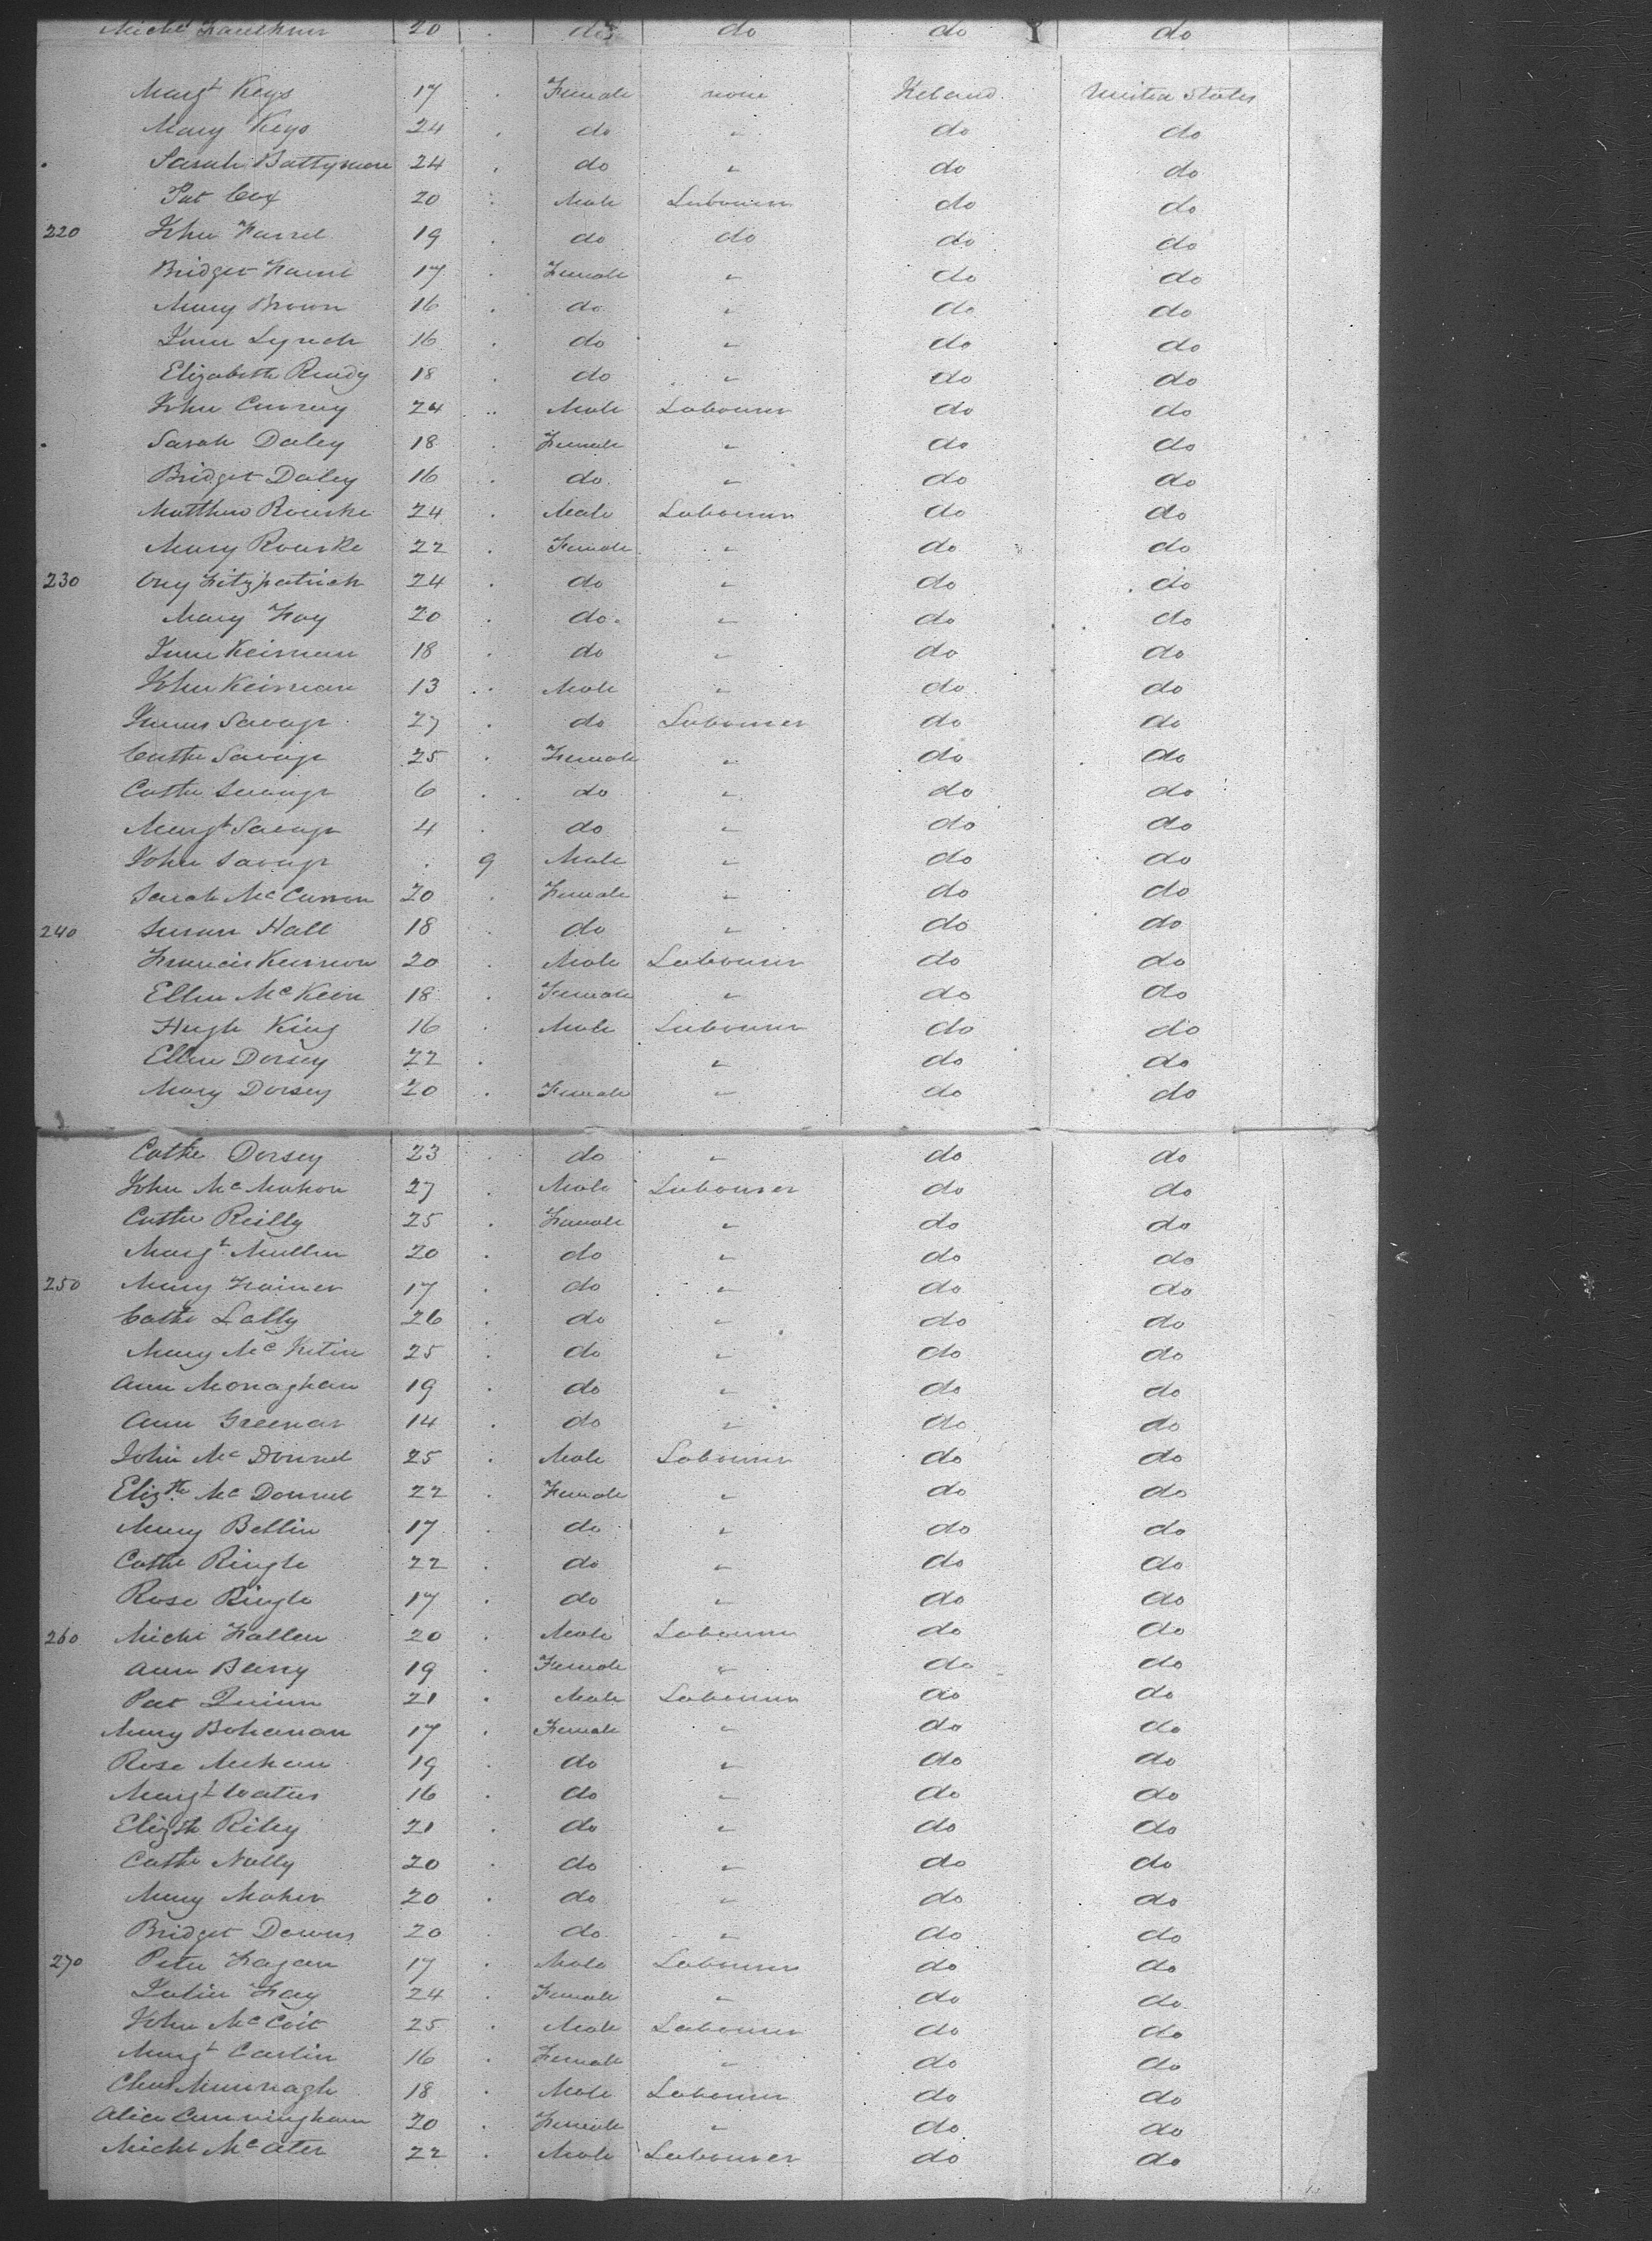 Michl Faulkner 20 . do do do do
Margt Keys 17 . Female none Ireland United States
Mary Keys 24 . do " do do
Sarah Battymore 24 . do " do do
Pat Cox 20 . Male Labourer do do
220 John Farrel 19 . do do do do
Bridget Farrel 17 . Female " do do
Mary Brown 16 . do " do do
Jane Lynch 16 . do " do do
Elizabeth Ready 18 . do " do do
John Curray 24 .. Male Labourer do do
Sarah Daley 18 . Female " do do
Bridget Daley 16 . do " do do
Matthew Rourke 24 . Male Labourer do do
Mary Rourke 22 . Female " do do
230 Ony Fitzpatrick 24 . do " do do
Mary Foy 20 . do " do do
Jane Keirnan 18 . do " do do
John Keirnan 13 . Male " do do
James Savage 27 . do Labourer do do
Cathe Savage 25 . Female " do do
Cathe Savage 6 . do " do do
Margt Savage 4 . do " do do
John Savage . 9 Male " do do
Sarah McCurron 20 . Female " do do
240 Susan Hall 18 do " do do
Francis Keirnon 20 . Male Labourer do do
Ellen McKeon 18 . Female " do do
Hugh King 16 . Male Labourer do do
Ellen Dorsey 22 . " do do
Mary Dorsey 20 . Female " do do
Cathe Dorsey 23 . do " do do
John McMahon 27 . Male Labourer do do
Cathe Reilly 25 . Female " do do
Margt Mullen 20 . do " do do
250 Mary Frainer 17 . do " do do
Cathe Lally 26 . do " do do
Mary Mc 25 . do " do do
Ann Monaghan 19 . do " do do
Ann Greenar 14 . do " do do
John McDonnel 25 . Male Labourer do do
Elizth McDonnel 22 . Female " do do
Mary Bellin 17 . do " do do
Cathe Ringle 22 . do " do do
Rose Ringle 17 . do " do do
260 Michl Fallen 20 . Male Labourer do do
Ann Berry 19 . Female " do do
Pat Quinn 21 . Male Labourer do do
Mary Bohanan 17 . Female " do do
Rose Mehan 19 . do " do do
Margt Waters 16 . do " do do
Elizth Riley 21 . do " do do
Cathe Nally 20 . do " do do
Mary Maher 20 . do " do do
Bridget Downs 20 . do " do do
270 Peter Fagan 17 . Male Labourer do do
Julia Fay 24 . Female " do do
John McCoit 25 . Male Labourer do do
Margt Carlin 16 . Female " do do
Chas Murnagh 18 . Male Labourer do do
Alice Cunningham 20 . Female " do do
Michl McAter 22 . Male Labourer do do